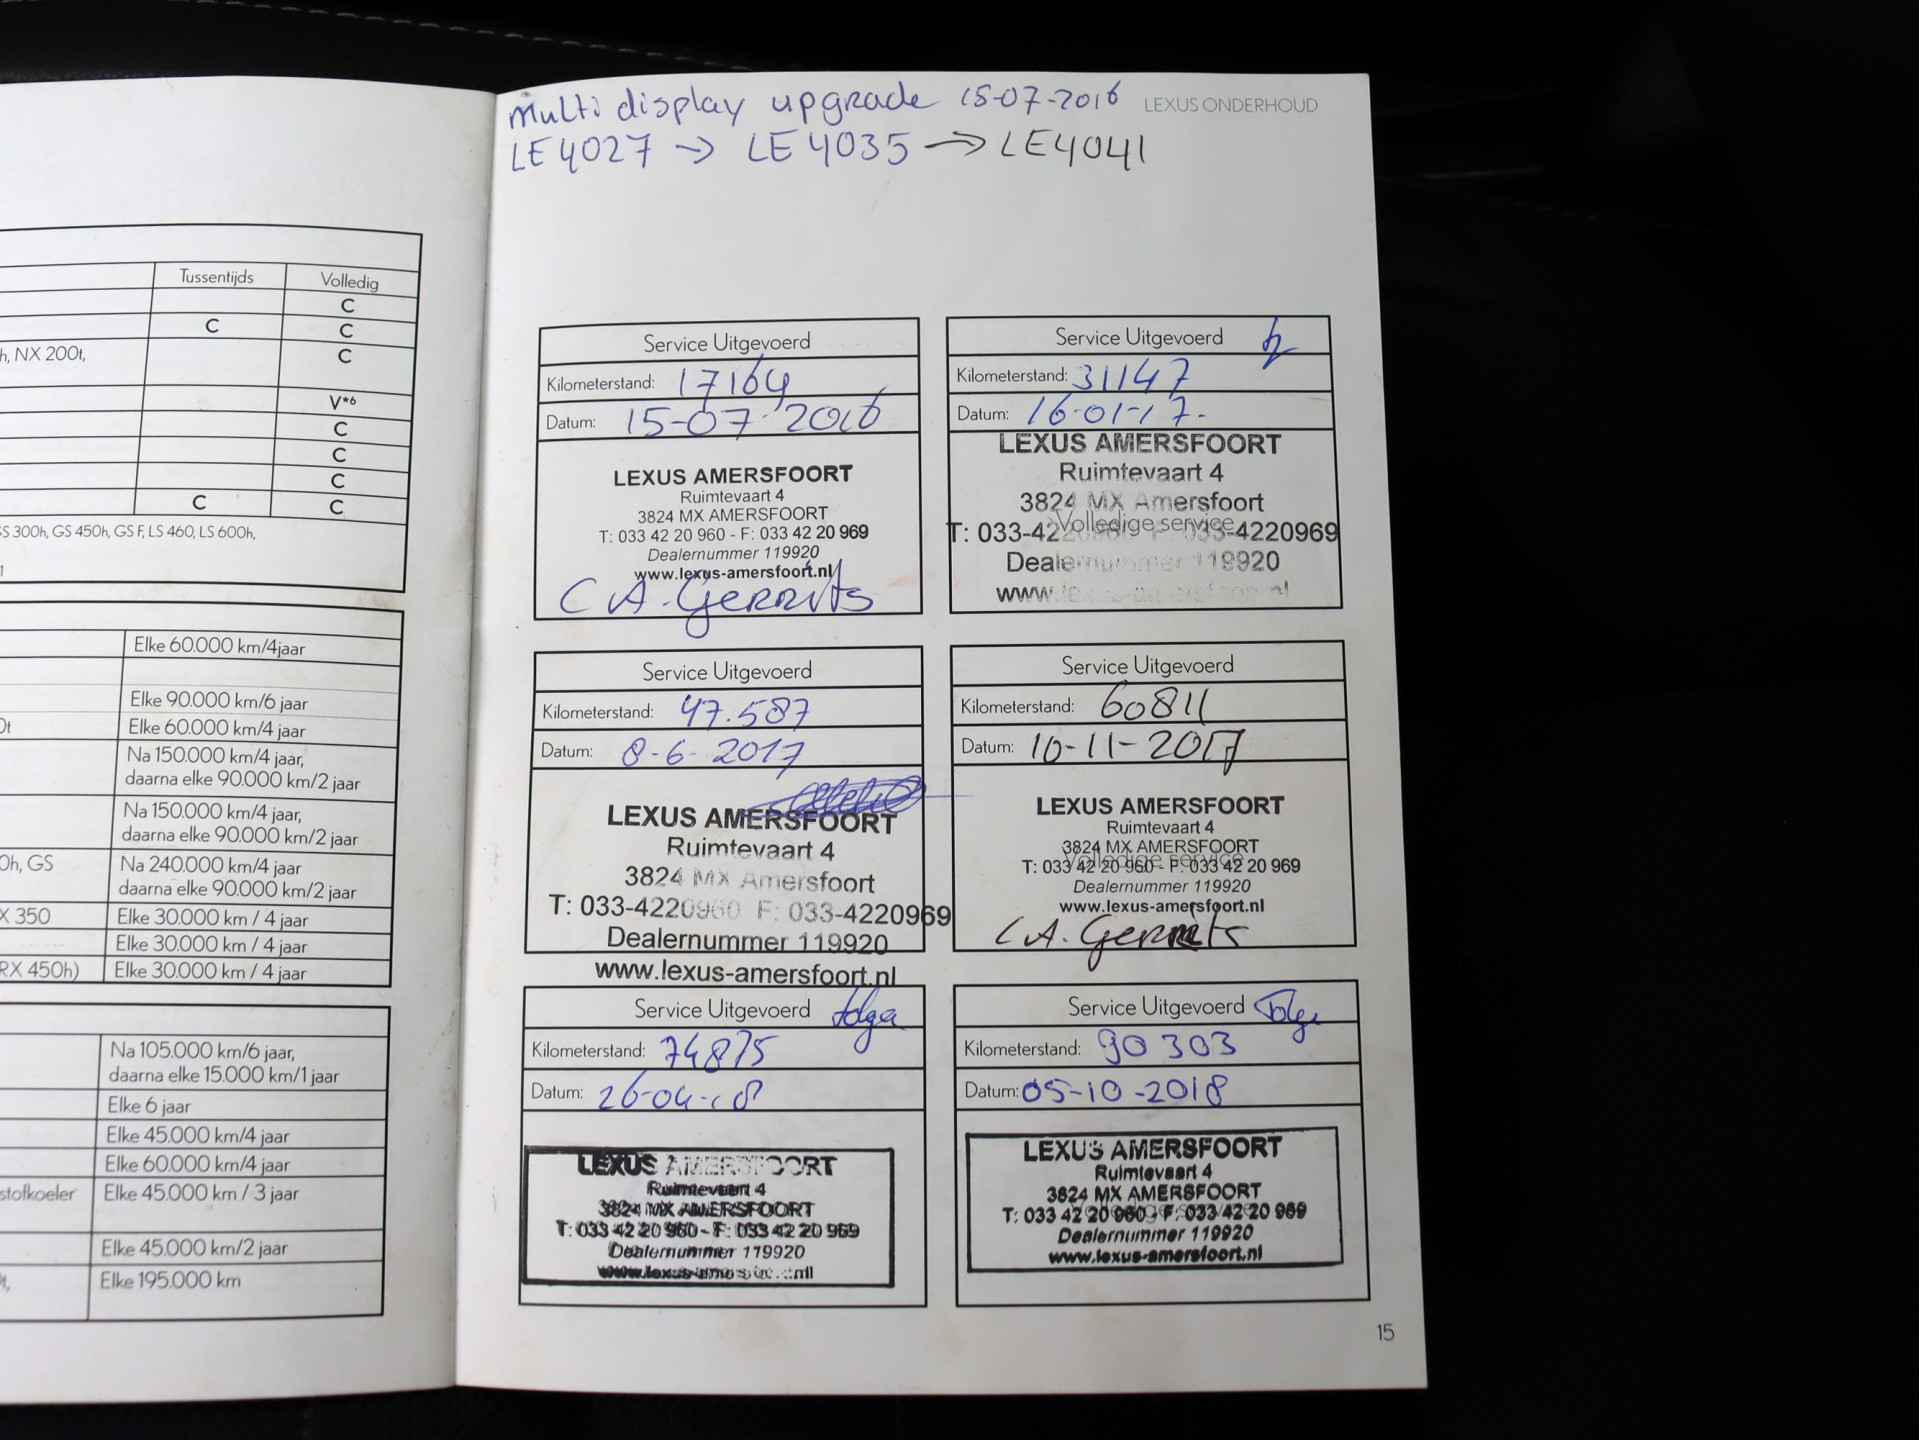 Tussentijds Volledig
C
C C
h, NX 200t, C
V*6
C
C
C
C C
GS 300h, GS 450h, GS F, LS 460, LS 600h,
Elke 60.000 km/4jaar
Elke 90.000 km/6 jaar
0t Elke 60.000 km/4 jaar
Na 150.000 km/4 jaar,
daarna elke 90.000 km/2 jaar
Na 150.000 km/4 jaar,
daarna elke 90.000 km/2 jaar
0h, GS Na 240.000 km/4 jaar
daarna elke 90.000 km/2 jaar
X 350 Elke 30.000 km / 4 jaar
Elke 30.000 km / 4 jaar
RX 450h) Elke 30.000 km / 4 jaar
Na 105.000 km/6 jaar,
daarna elke 15.000 km/1 jaar
Elke 6 jaar
Elke 45.000 km/4 jaar
Elke 60.000 km/4 jaar
stofkoeler Elke 45.000 km / 3 jaar
Elke 45.000 km/2 jaar
Elke 195.000 km
multi display upgrade 15-07-2016 LEXUS ONDERHOUD
LE4027 → LE4035 → LE4041
Service Uitgevoerd
Kilometerstand: 17164
Datum: 15-07-2016
LEXUS AMERSFOORT
Ruimtevaart 4
3824 MX AMERSFOORT
T: 033 42 20 960 - F: 033 42 20 969
Dealernummer 119920
www.lexus-amersfoort.nl
C A. Gerrits
Service Uitgevoerd
Kilometerstand: 31147
Datum: 16-01-17.
LEXUS AMERSFOORT
Ruimtevaart 4
3824 MX Amersfoort
Volledige service
T: 033-4220960 F: 033-4220969
Dealernummer 119920
www.lexus-amersfoort.nl
Service Uitgevoerd
Kilometerstand: 47.587
Datum: 8-6-2017
LEXUS AMERSFOORT
Ruimtevaart 4
3824 MX Amersfoort
T: 033-4220960 F: 033-4220969
Dealernummer 119920
www.lexus-amersfoort.nl
Service Uitgevoerd
Kilometerstand: 60811
Datum: 10-11-2017
LEXUS AMERSFOORT
Ruimtevaart 4
3824 MX AMERSFOORT
Volledige service
T: 033 42 20 960 - F: 033 42 20 969
Dealernummer 119920
www.lexus-amersfoort.nl
C A. Gerrits
Service Uitgevoerd
Kilometerstand: 74875
Datum: 26-04-18
LEXUS AMERSFOORT
Ruimtevaart 4
3824 MX AMERSFOORT
T: 033 42 20 960 - F: 033 42 20 969
Dealernummer 119920
www.lexus-amersfoort.nl
Service Uitgevoerd
Kilometerstand: 90303
Datum: 05-10-2018
LEXUS AMERSFOORT
Ruimtevaart 4
3824 MX AMERSFOORT
T: 033 42 20 960 - F: 033 42 20 969
Dealernummer 119920
www.lexus-amersfoort.nl
15